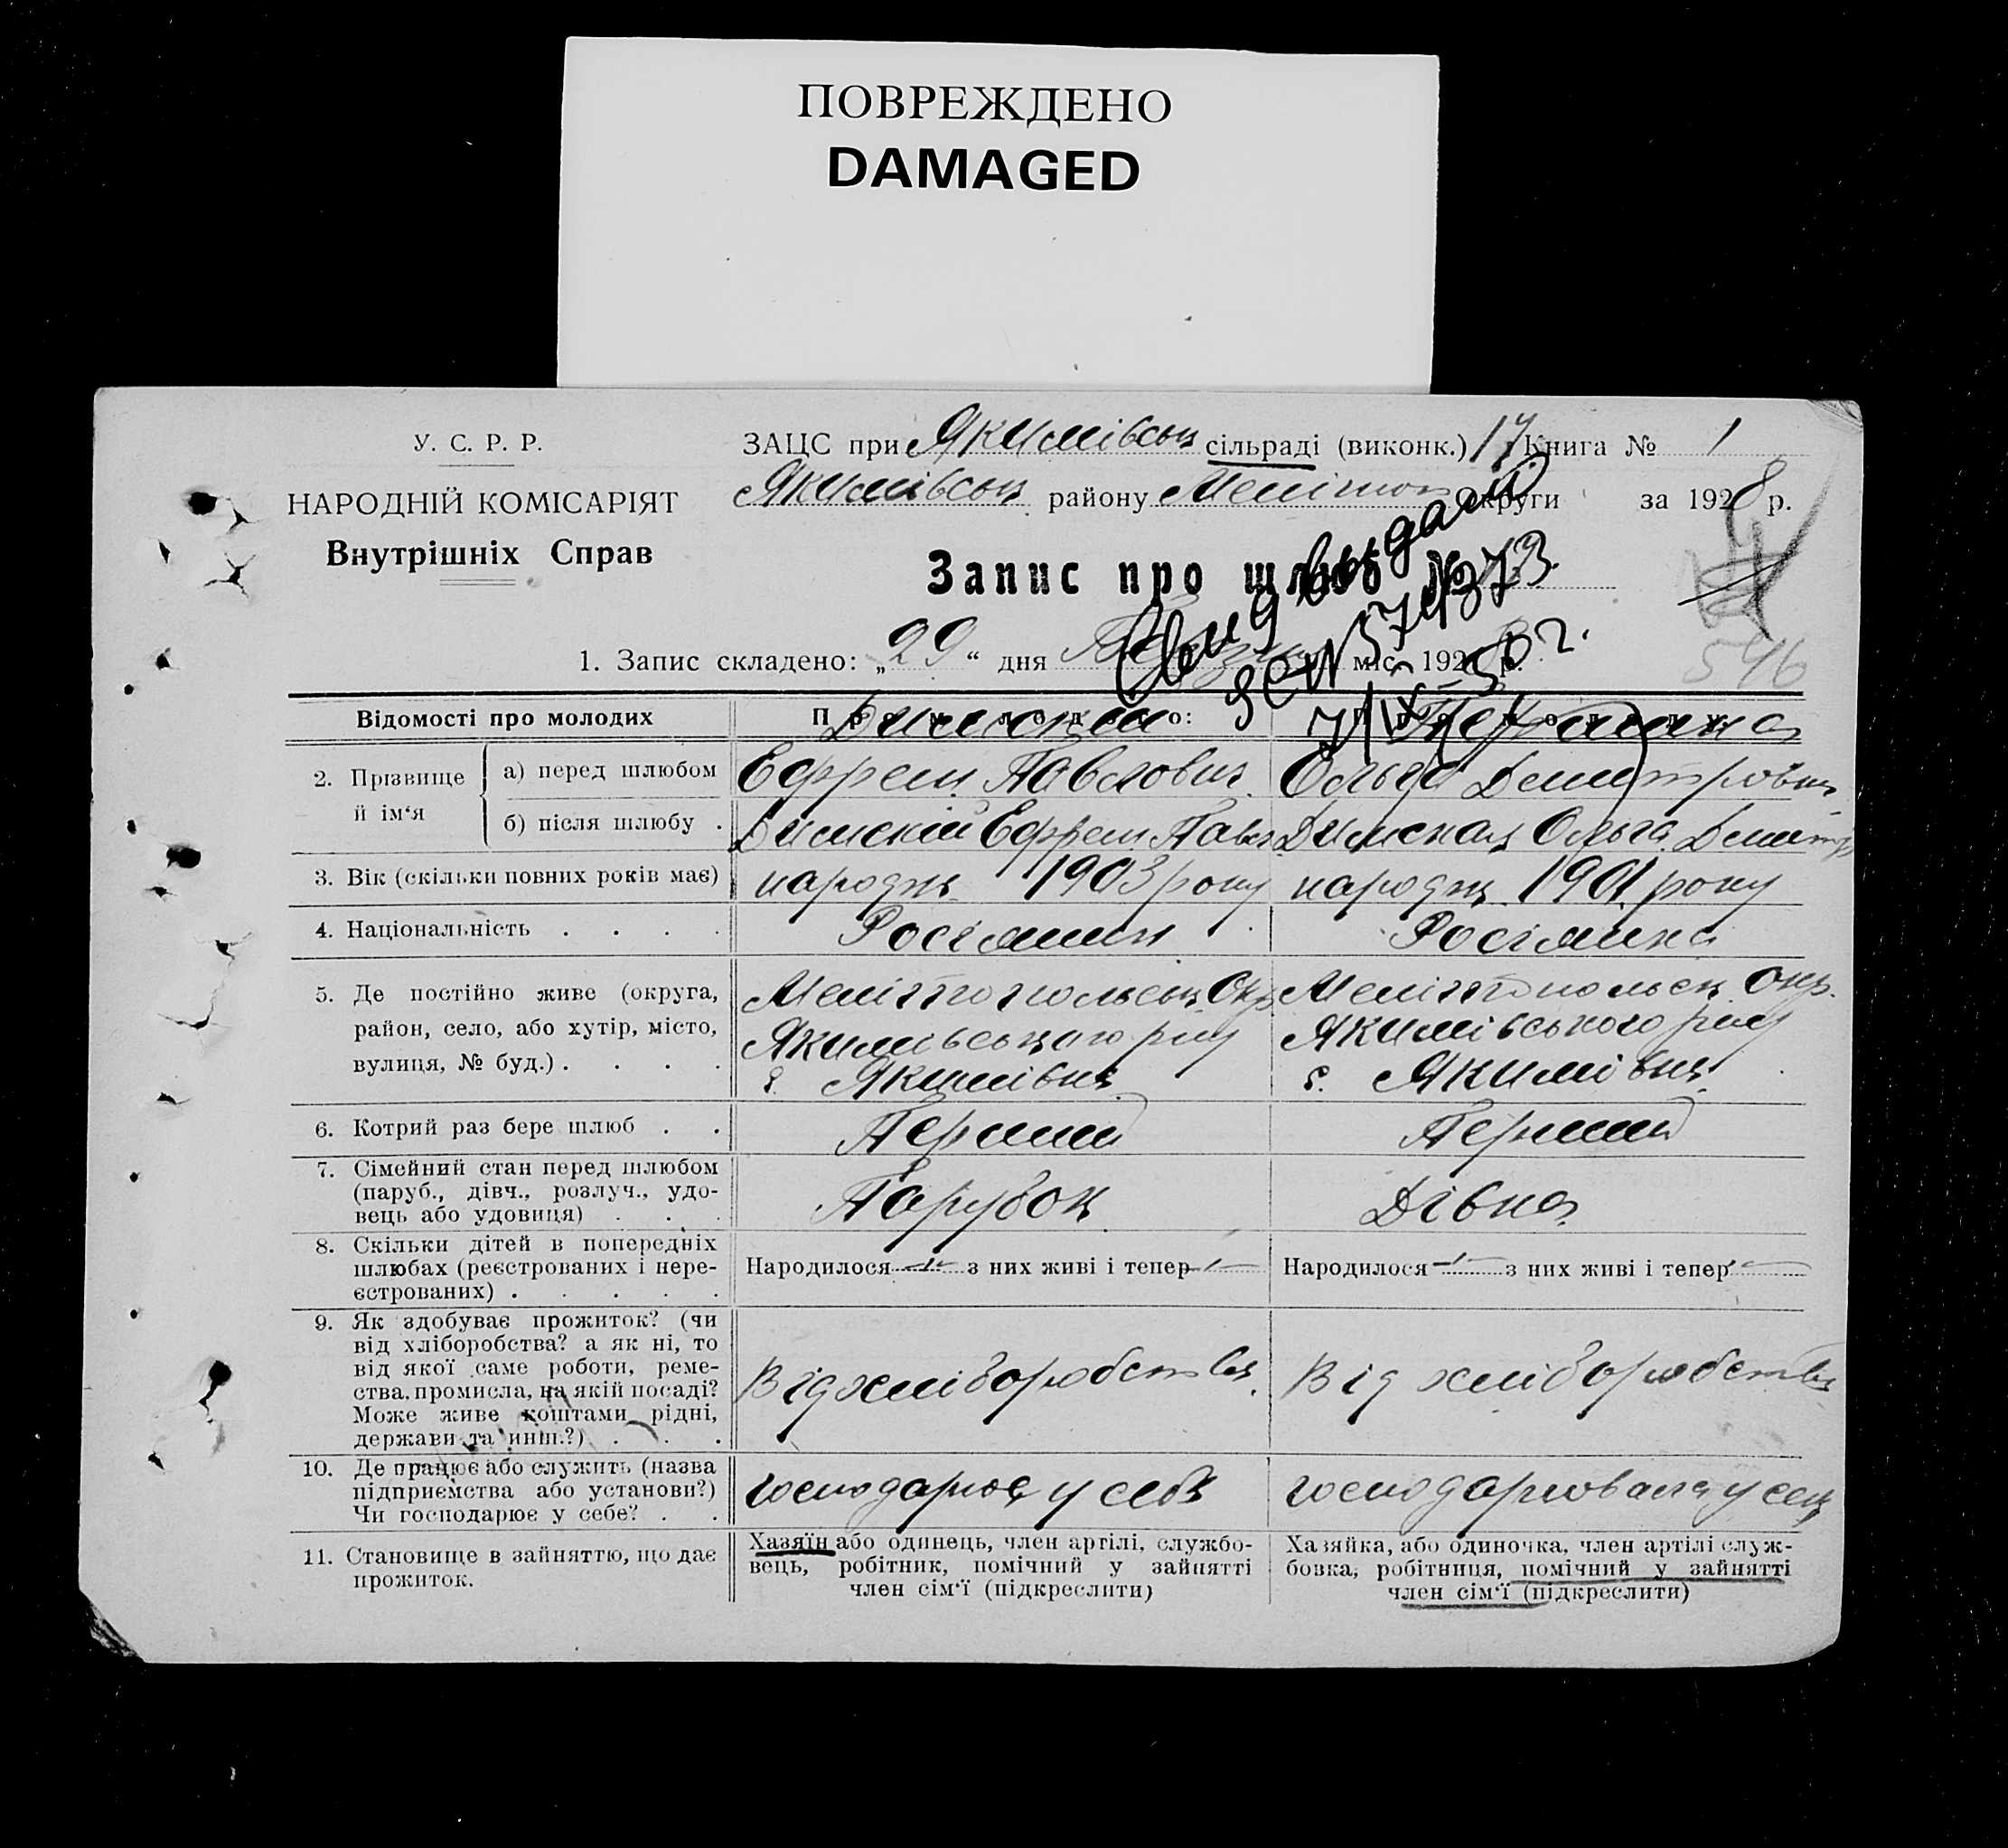 ПОВРЕЖДЕНО
DAMAGED
У. С. Р. Р.
НАРОДНІЙ КОМІСАРІЯТ
Внутрішніх Справ
ЗАЦС при Якимівськ сільраді (виконк.) Книга № 1
Якимівськ району Меліт Округи за 1928 р.
Запис про шлюб №
1. Запис складено: „29“ дня міс. 192 р.
Відомості про молодих
2. Прізвище й ім‘я
а) перед шлюбом
Димский Ефрем Павлович
Ольга Демитровна
б) після шлюбу .
Димский Ефрем Павл
Димская Ольга Демитр
3. Вік (скільки повних років має)
народж 1903 року
народж 1901 року
4. Національність . . . .
Росіянин
Росіянка
5. Де постійно живе (округа,
район, село, або хутір, місто,
вулиця, № буд.) . . . .
Мелітопольськ Окр
Якимівського р-ну
с. Якимівка
Мелітопольск Окр.
Якимівського р-ну
с. Якимівка
6. Котрий раз бере шлюб . .
Перший
Перший
7. Сімейний стан перед шлюбом
(паруб., дівч., розлуч., удо-
вець або удовиця) . . .
Парубок
Дівка
8. Скільки дітей в попередніх
шлюбах (реєстрованих і нере-
єстрованих) . . . . .
Народилося — з них живі і тепер —
Народилося — з них живі і тепер —
9. Як здобуває прожиток? (чи
від хліборобства? а як ні, то
від якої саме роботи, реме-
ства, промисла, на якій посаді?
Може живе коштами рідні,
держави та инш.?) . . .
Від хліборобства
Від хліборобства
10. Де працює або служить (назва
підприємства або установи?)
Чи господарює у себе? . .
господарює у себе
господарювала у
11. Становище в зайняттю, що дає
прожиток.
Хазяїн або одинець, член артілі, службо-
вець, робітник, помічний у зайнятті
член сім‘ї (підкреслити)
Хазяйка, або одиночка, член артілі служ-
бовка, робітниця, помічний у зайнятті
член сім‘ї (підкреслити)
546